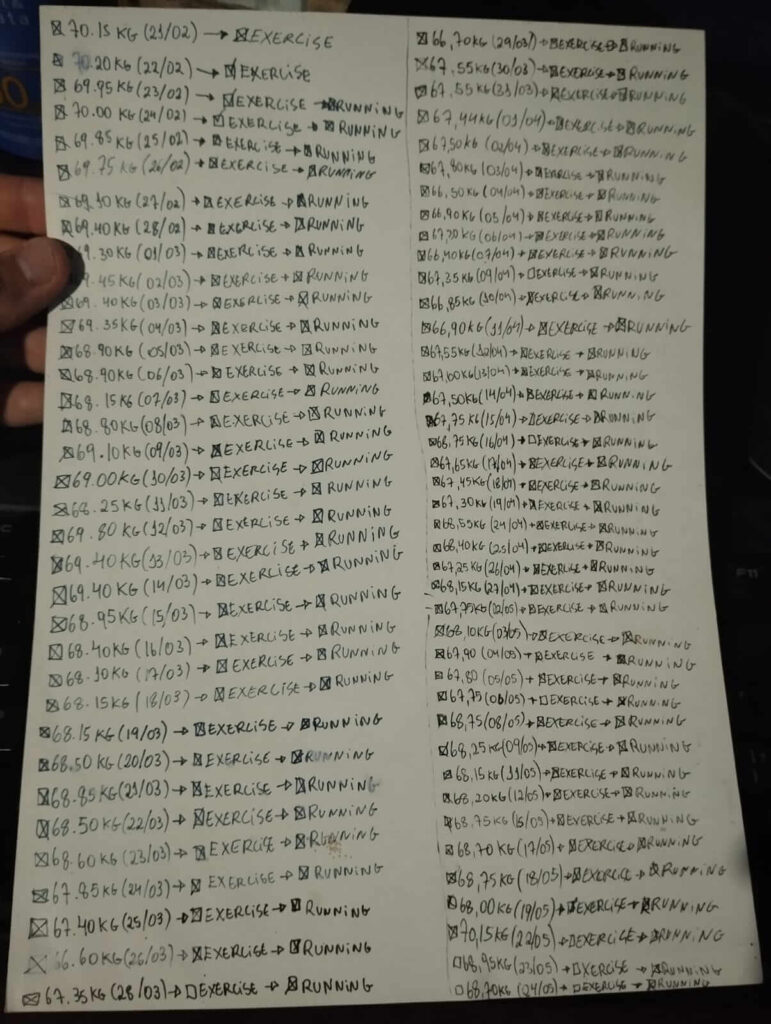 ☒ 70.15 KG (21/02) → ☒ EXERCISE
☒ 70.20KG (22/02) → ☒ EXERCISE
☒ 69.95KG (23/02) → ☒ EXERCISE → ☒ RUNNING
☒ 70.00KG (24/02) → ☒ EXERCISE → ☒ RUNNING
☒ 69.85KG (25/02) → ☒ EXERCISE → ☒ RUNNING
☒ 69.75KG (26/02) → ☒ EXERCISE → ☒ RUNNING
☒ 69.10KG (27/02) → ☒ EXERCISE → ☒ RUNNING
☒ 69.40KG (28/02) → ☒ EXERCISE → ☒ RUNNING
9.30KG (01/03) → ☒ EXERCISE → ☒ RUNNING
9.45KG (02/03) → ☒ EXERCISE → ☒ RUNNING
☒ 69.40KG (03/03) → ☒ EXERCISE → ☒ RUNNING
☒ 69.35KG (04/03) → ☒ EXERCISE → ☒ RUNNING
☒ 68.90KG (05/03) → ☒ EXERCISE → ☒ RUNNING
☒ 68.90KG (06/03) → ☒ EXERCISE → ☒ RUNNING
☒ 68.15KG (07/03) → ☒ EXERCISE → ☒ RUNNING
☒ 68.80KG (08/03) → ☒ EXERCISE → ☒ RUNNING
☒ 69.10KG (09/03) → ☒ EXERCISE → ☒ RUNNING
☒ 69.00KG (10/03) → ☒ EXERCISE → ☒ RUNNING
☒ 68.25KG (11/03) → ☒ EXERCISE → ☒ RUNNING
☒ 69.80KG (12/03) → ☒ EXERCISE → ☒ RUNNING
☒ 69.40KG (13/03) → ☒ EXERCISE → ☒ RUNNING
☒ 69.40KG (14/03) → ☒ EXERCISE → ☒ RUNNING
☒ 68.95KG (15/03) → ☒ EXERCISE → ☒ RUNNING
☒ 68.40KG (16/03) → ☒ EXERCISE → ☒ RUNNING
☒ 68.10KG (17/03) → ☒ EXERCISE → ☒ RUNNING
☒ 68.15KG (18/03) → ☒ EXERCISE → ☒ RUNNING
☒ 68.15KG (19/03) → ☒ EXERCISE → ☒ RUNNING
☒ 68.50KG (20/03) → ☒ EXERCISE → ☒ RUNNING
☒ 68.85KG (21/03) → ☒ EXERCISE → ☒ RUNNING
☒ 68.50KG (22/03) → ☒ EXERCISE → ☒ RUNNING
☒ 68.60KG (23/03) → ☒ EXERCISE → ☒ RUNNING
☒ 67.85KG (24/03) → ☒ EXERCISE → ☒ RUNNING
☒ 67.40KG (25/03) → ☒ EXERCISE → ☒ RUNNING
☒ 66.60KG (26/03) → ☒ EXERCISE → ☒ RUNNING
☒ 67.35KG (28/03) → ☐ EXERCISE → ☒ RUNNING
☒ 66,70KG (29/03) → ☒ EXERCISE → ☒ RUNNING
☒ 67,55KG (30/03) → ☒ EXERCISE → ☒ RUNNING
☒ 67,55KG (31/03) → ☒ EXERCISE → ☒ RUNNING
☒ 67,44KG (01/04) → ☒ EXERCISE → ☒ RUNNING
☒ 67,50KG (02/04) → ☒ EXERCISE → ☒ RUNNING
☒ 67,80KG (03/04) → ☒ EXERCISE → ☒ RUNNING
☒ 66,50KG (04/04) → ☒ EXERCISE → ☒ RUNNING
☒ 66,90KG (05/04) → ☒ EXERCISE → ☒ RUNNING
☒ 67,20KG (06/04) → ☒ EXERCISE → ☒ RUNNING
☒ 66,40KG (07/04) → ☒ EXERCISE → ☒ RUNNING
☒ 67,35KG (09/04) → ☐ EXERCISE → ☒ RUNNING
☒ 66,85KG (10/04) → ☒ EXERCISE → ☒ RUNNING
☒ 66,90KG (11/04) → ☒ EXERCISE → ☒ RUNNING
☒ 67,55KG (12/04) → ☒ EXERCISE → ☒ RUNNING
☒ 67,00KG (13/04) → ☒ EXERCISE → ☒ RUNNING
☒ 67,50KG (14/04) → ☒ EXERCISE → ☒ RUNNING
☒ 67,75KG (15/04) → ☒ EXERCISE → ☒ RUNNING
☒ 68,75KG (16/04) → ☐ EXERCISE → ☒ RUNNING
☒ 67,65KG (17/04) → ☒ EXERCISE → ☒ RUNNING
☒ 67,45KG (18/04) → ☒ EXERCISE → ☒ RUNNING
☒ 67,30KG (19/04) → ☒ EXERCISE → ☒ RUNNING
☒ 68,55KG (24/04) → ☒ EXERCISE → ☒ RUNNING
☒ 68,40KG (25/04) → ☒ EXERCISE → ☒ RUNNING
☒ 67,25KG (26/04) → ☒ EXERCISE → ☒ RUNNING
☒ 68,15KG (27/04) → ☒ EXERCISE → ☒ RUNNING
☒ 67,75KG (02/05) → ☒ EXERCISE → ☒ RUNNING
☒ 68,10KG (03/05) → ☒ EXERCISE → ☒ RUNNING
☒ 67,90 (04/05) → ☒ EXERCISE → ☒ RUNNING
☒ 67,80 (05/05) → ☒ EXERCISE → ☒ RUNNING
☒ 67,75 (06/05) → ☐ EXERCISE → ☒ RUNNING
☒ 68,75 (08/05) → ☒ EXERCISE → ☒ RUNNING
☒ 68,25KG (09/05) → ☒ EXERCISE → ☒ RUNNING
☒ 68,15KG (11/05) → ☒ EXERCISE → ☒ RUNNING
☒ 68,20KG (12/05) → ☒ EXERCISE → ☒ RUNNING
☒ 68,75KG (15/05) → ☒ EXERCISE → ☒ RUNNING
☒ 68,70KG (17/05) → ☒ EXERCISE → ☒ RUNNING
☒ 68,75KG (18/05) → ☒ EXERCISE → ☒ RUNNING
☒ 68,00KG (19/05) → ☒ EXERCISE → ☒ RUNNING
☒ 70,15KG (22/05) → ☒ EXERCISE → ☒ RUNNING
☐ 68,95KG (23/05) → ☐ EXERCISE → ☒ RUNNING
☐ 68,70KG (24/05) → ☒ EXERCISE → ☒ RUNNING
F11